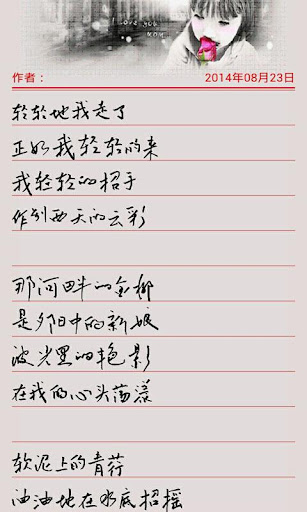 I love you
作者： 2014年08月23日
轻轻地我走了
正如我轻轻的来
我轻轻的招手
作别西天的云彩
那河畔的金柳
是夕阳中的新娘
波光里的艳影
在我的心头荡漾
软泥上的青荇
油油地在水底招摇